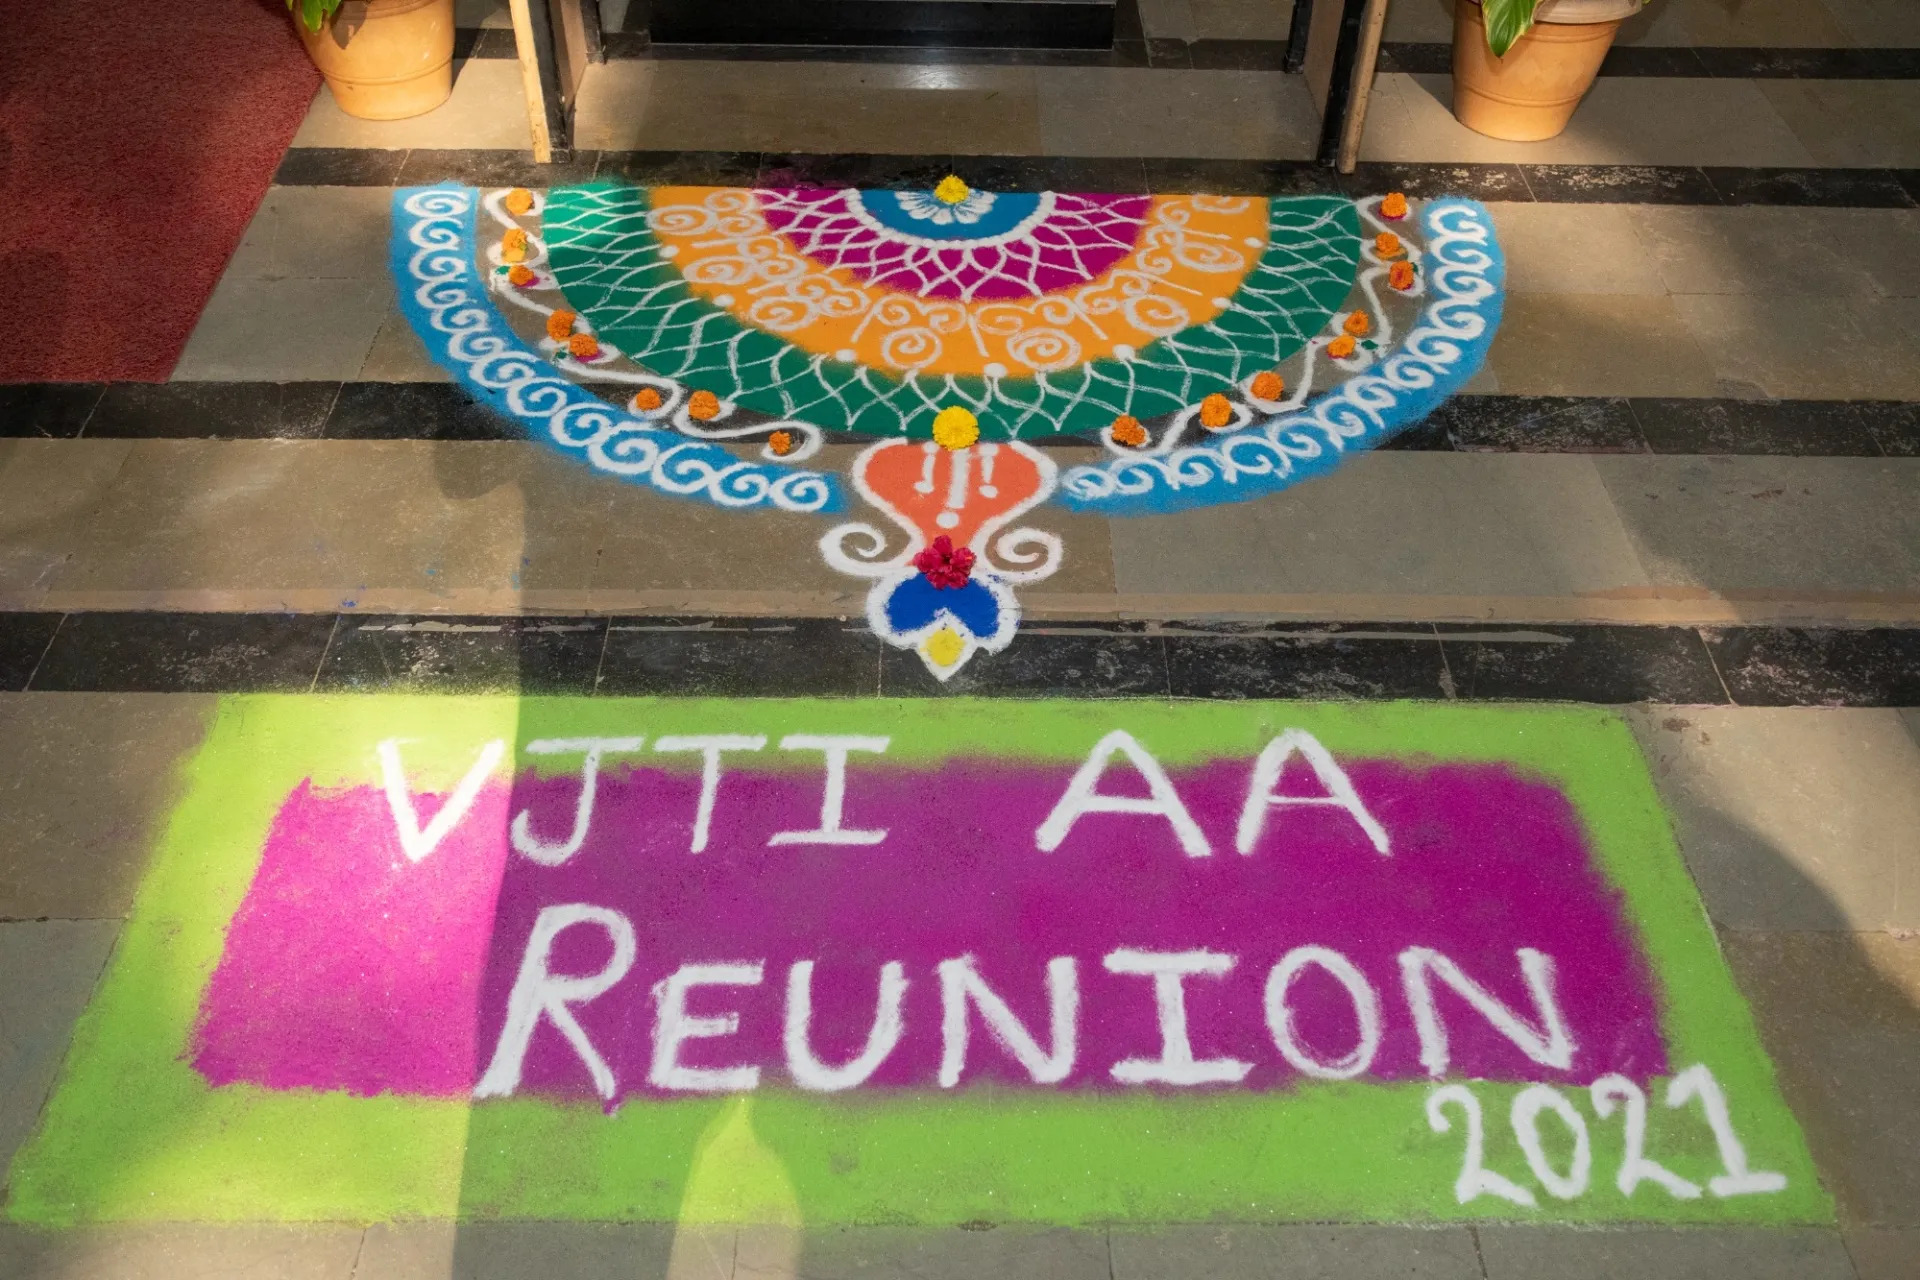 VJTI AA
REUNION
2021